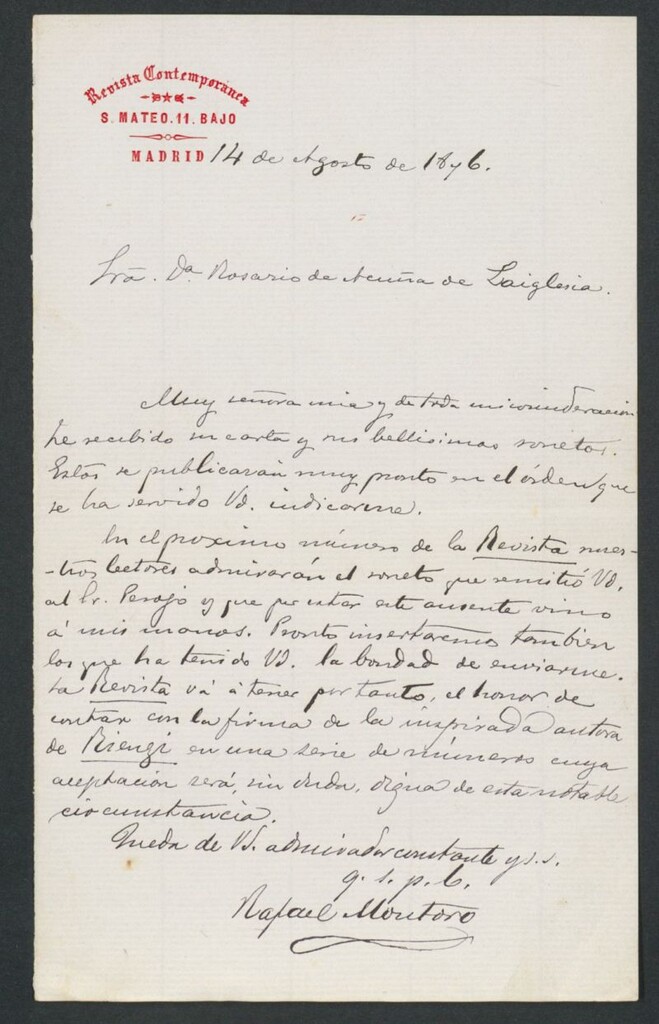 Revista Contemporánea
S. MATEO. 11. BAJO
MADRID 14 de Agosto de 1876.
Sra. Da. Rosario de Acuña de Laiglesia.
Muy señora mia y de toda mi consideracion
he recibido su carta y sus bellisimos sonetos.
Estos se publicarán muy pronto en el órden que
se ha servido Vd. indicarme.
En el proximo número de la Revista nues-
-tros lectores admirarán el soneto que remitió Vd.
al Sr. Perojo y que por estar este ausente vino
á mis manos. Pronto insertaremos tambien
los que ha tenido Vd. la bondad de enviarme.
La Revista vá á tener por tanto, el honor de
contar con la firma de la inspirada autora
de Rienzi en una serie de números cuya
aceptacion será, sin duda, digna de esta notable
circunstancia.
Queda de Vd. admirador constante y s. s.
q. s. p. b.
Rafael Montoro